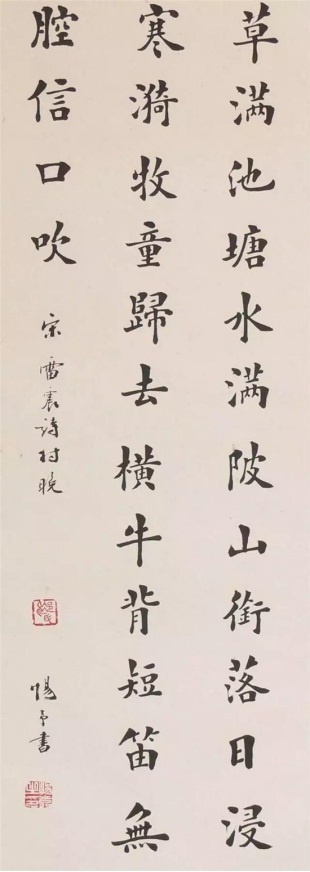 草满池塘水满陂山衔落日浸
寒漪牧童歸去横牛背短笛無
腔信口吹
宋雷震詩村晚
惕予書